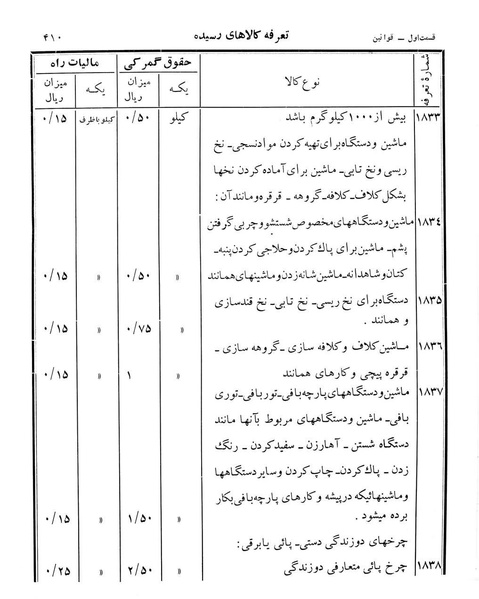 قسمت اول ــ قوانین تعرفه کالاهای رسیده ۴۱۰
شمارهٔ تعرفه نوع کالا حقوق گمرکی مالیات راه
یکه میزان ریال یکه میزان ریال
۱۸۳۳ بیش از ۱۰۰۰ کیلوگرم باشد کیلو ۰/۵۰ کیلو باظرف ۰/۱۵
ماشین و دستگاه برای تهیه کردن موادنسجی ــ نخ
ریسی و نخ تابی ــ ماشین برای آماده کردن نخها
بشکل کلاف ــ کلافه ــ گروهه ــ قرقره و مانند آن :
۱۸۳۴ ماشین و دستگاههای مخصوص شستشو و چربی گرفتن
پشم ــ ماشین برای پاك کردن و حلاجی کردن پنبه ــ
کتان و شاهدانه ــ ماشین شانه زدن و ماشینهای همانند » ۰/۵۰ » ۰/۱۵
۱۸۳۵ دستگاه برای نخ ریسی ــ نخ تابی ــ نخ قندسازی
و همانند . » ۰/۷۵ » ۰/۱۵
۱۸۳۶ ماشین کلاف و کلافه سازی ــ گروهه سازی ــ
قرقره پیچی و کارهای همانند » ۱ » ۰/۱۵
۱۸۳۷ ماشین و دستگاههای پارچه بافی ــ تور بافی ــ توری
بافی ــ ماشین و دستگاههای مربوط بآنها مانند
دستگاه شستن ــ آهارزن ــ سفید کردن ــ رنگ
زدن ــ پاك کردن ــ چاپ کردن و سایر دستگاهها
و ماشینهائیکه درپیشه و کارهای پارچه بافی بکار
برده میشود . » ۱/۵۰ » ۰/۱۵
چرخهای دوزندگی دستی ــ پائی یا برقی :
۱۸۳۸ چرخ پائی متعارفی دوزندگی » ۲/۵۰ » ۰/۲۵